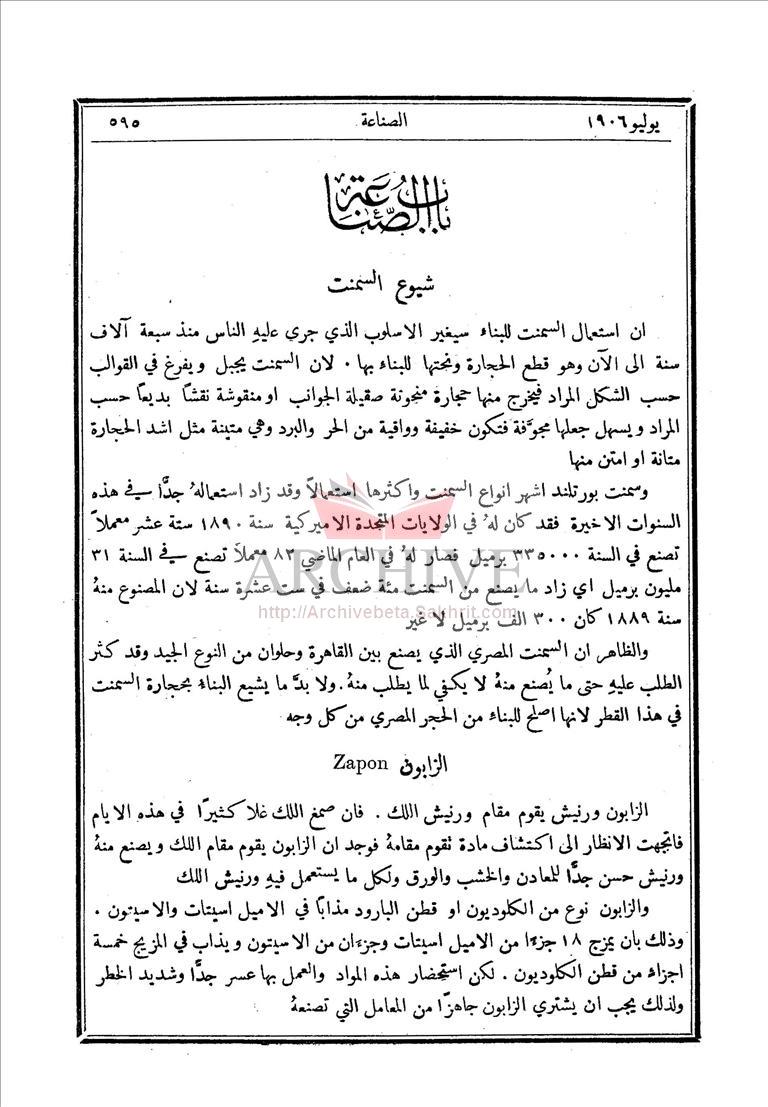 يوليو ١٩٠٦ الصناعة ٥٩٥
باب الصناعة
شيوع السمنت
ان استعمال السمنت للبناء سيغير الاسلوب الذي جرى عليهِ الناس منذ سبعة آلاف
سنة الى الآن وهو قطع الحجارة ونحتها للبناء بها . لان السمنت يجبل ويفرغ في القوالب
حسب الشكل المراد فيخرج منها حجارة منحوتة صقيلة الجوانب او منقوشة نقشًا بديعًا حسب
المراد ويسهل جعلها مجوَّفة فتكون خفيفة وواقية من الحر والبرد وهي متينة مثل اشد الحجارة
متانة او امتن منها
وسمنت بورتلند اشهر انواع السمنت واكثرها استعمالاً وقد زاد استعمالهُ جدًّا في هذه
السنوات الاخيرة فقد كان لهُ في الولايات المتحدة الاميركية سنة ١٨٩٠ ستة عشر معملاً
تصنع في السنة ٣٣٥٠٠٠ برميل فصار لهُ في العام الماضي ٨٣ معملاً تصنع في السنة ٣١
مليون برميل اي زاد ما يصنع من السمنت مئة ضعف في ست عشرة سنة لان المصنوع منهُ
سنة ١٨٨٩ كان ٣٠٠ الف برميل لا غير
ARCHIVE
http://Archivebeta.Sakhrit.com
والظاهر ان السمنت المصري الذي يصنع بين القاهرة وحلوان من النوع الجيد وقد كثر
الطلب عليهِ حتى ما يُصنع منهُ لا يكفي لما يطلب منهُ . ولا بدَّ ما يشيع البناء بحجارة السمنت
في هذا القطر لانها اصلح للبناء من الحجر المصري من كل وجه
الزابون Zapon
الزابون ورنيش يقوم مقام ورنيش اللك . فان صمغ اللك غلا كثيرًا في هذه الايام
فاتجهت الانظار الى اكتشاف مادة تقوم مقامهُ فوجد ان الزابون يقوم مقام اللك ويصنع منهُ
ورنيش حسن جدًّا للمعادن والخشب والورق ولكل ما يستعمل فيهِ ورنيش اللك
والزابون نوع من الكلوديون او قطن البارود مذابًا في الاميل اسيتات والاسيتون .
وذلك بان يمزج ١٨ جزءًا من الاميل اسيتات وجزءان من الاسيتون ويذاب في المزيج خمسة
اجزاء من قطن الكلوديون . لكن استحضار هذه المواد والعمل بها عسر جدًّا وشديد الخطر
ولذلك يجب ان يشترى الزابون جاهزًا من المعامل التي تصنعهُ